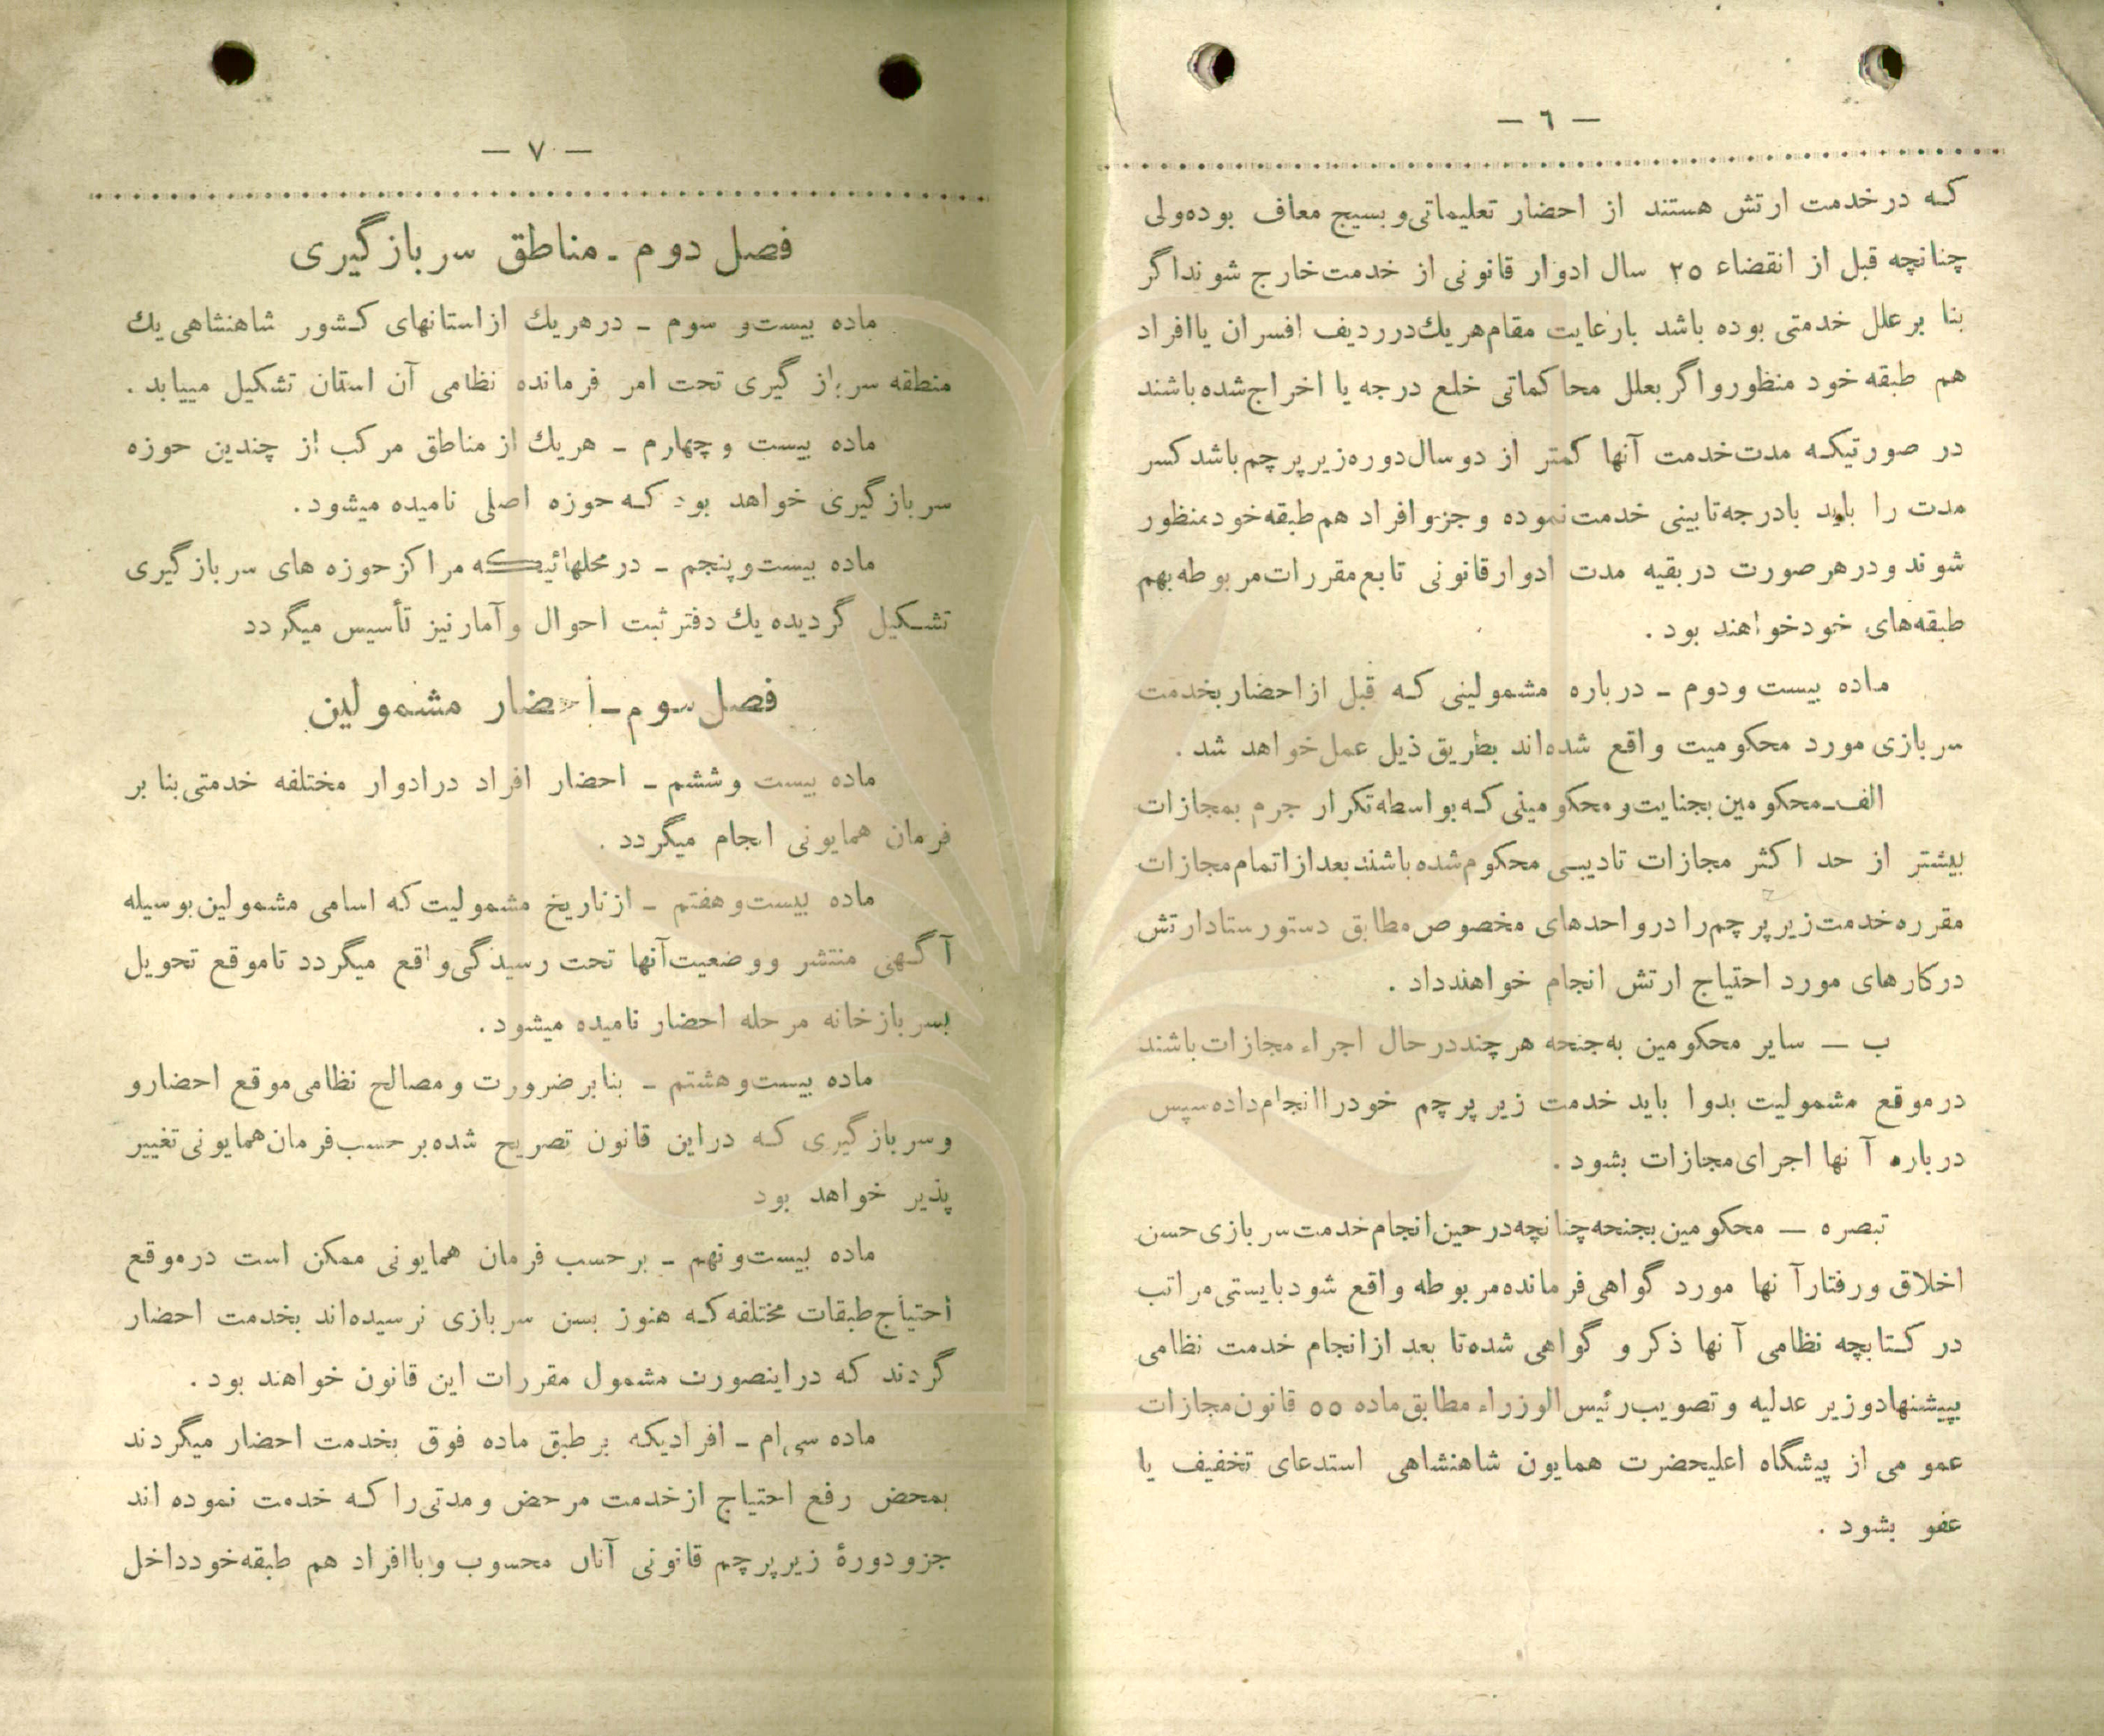 — ٦ —
که در خدمت ارتش هستند از احضار تعلیماتی و بسیج معاف بوده ولی
چنانچه قبل از انقضاء ۲۵ سال ادوار قانونی از خدمت خارج شوند اگر
بنا بر علل خدمتی بوده باشد با رعایت مقام هریك در ردیف افسران یا افراد
هم طبقه خود منظور و اگر بعلل محاکماتی خلع درجه یا اخراج شده باشند
در صورتیکه مدت خدمت آنها کمتر از دو سال دوره زیر پرچم باشد کسر
مدت را باید با درجه تابینی خدمت نموده و جزو افراد هم طبقه خود منظور
شوند و در هر صورت در بقیه مدت ادوار قانونی تابع مقررات مربوطه بهم
طبقه‌های خود خواهند بود .
ماده بیست و دوم ـ درباره مشمولینی که قبل از احضار بخدمت
سربازی مورد محکومیت واقع شده‌اند بطریق ذیل عمل خواهد شد .
الف ـ محکومین بجنایت و محکومینی که بواسطه تکرار جرم بمجازات
بیشتر از حد اکثر مجازات تادیبی محکوم شده باشند بعد از اتمام مجازات
مقرره خدمت زیر پرچم را در واحدهای مخصوص مطابق دستور ستاد ارتش
در کارهای مورد احتیاج ارتش انجام خواهند داد .
ب — سایر محکومین به جنحه هر چند در حال اجراء مجازات باشند
در موقع مشمولیت بدوا باید خدمت زیر پرچم خود را انجام داده سپس
درباره آنها اجرای مجازات بشود .
تبصره — محکومین بجنحه چنانچه در حین انجام خدمت سربازی حسن
اخلاق و رفتار آنها مورد گواهی فرمانده مربوطه واقع شود بایستی مراتب
در کتابچه نظامی آنها ذکر و گواهی شده تا بعد از انجام خدمت نظامی
بپیشنهاد وزیر عدلیه و تصویب رئیس الوزراء مطابق ماده ۵۵ قانون مجازات
عمومی از پیشگاه اعلیحضرت همایون شاهنشاهی استدعای تخفیف یا
عفو بشود .
— ۷ —
فصل دوم ـ مناطق سربازگیری
ماده بیست و سوم ـ در هریك از استانهای کشور شاهنشاهی یك
منطقه سربازگیری تحت امر فرمانده نظامی آن استان تشکیل مییابد .
ماده بیست و چهارم ـ هریك از مناطق مرکب از چندین حوزه
سربازگیری خواهد بود که حوزه اصلی نامیده میشود .
ماده بیست و پنجم ـ در محلهائیکه مراکز حوزه های سربازگیری
تشکیل گردیده یك دفتر ثبت احوال و آمار نیز تأسیس میگردد
فصل سوم ـ احضار مشمولین
ماده بیست و ششم ـ احضار افراد در ادوار مختلفه خدمتی بنا بر
فرمان همایونی انجام میگردد .
ماده بیست و هفتم ـ از تاریخ مشمولیت که اسامی مشمولین بوسیله
آگهی منتشر و وضعیت آنها تحت رسیدگی واقع میگردد تا موقع تحویل
بسربازخانه مرحله احضار نامیده میشود .
ماده بیست و هشتم ـ بنا بر ضرورت و مصالح نظامی موقع احضار و
و سربازگیری که در این قانون تصریح شده بر حسب فرمان همایونی تغییر
پذیر خواهد بود
ماده بیست و نهم ـ بر حسب فرمان همایونی ممکن است در موقع
احتیاج طبقات مختلفه که هنوز بسن سربازی نرسیده‌اند بخدمت احضار
گردند که در اینصورت مشمول مقررات این قانون خواهند بود .
ماده سی ام ـ افرادیکه بر طبق ماده فوق بخدمت احضار میگردند
بمحض رفع احتیاج از خدمت مرخص و مدتی را که خدمت نموده اند
جزو دورهٔ زیر پرچم قانونی آنان محسوب و با افراد هم طبقه خود داخل